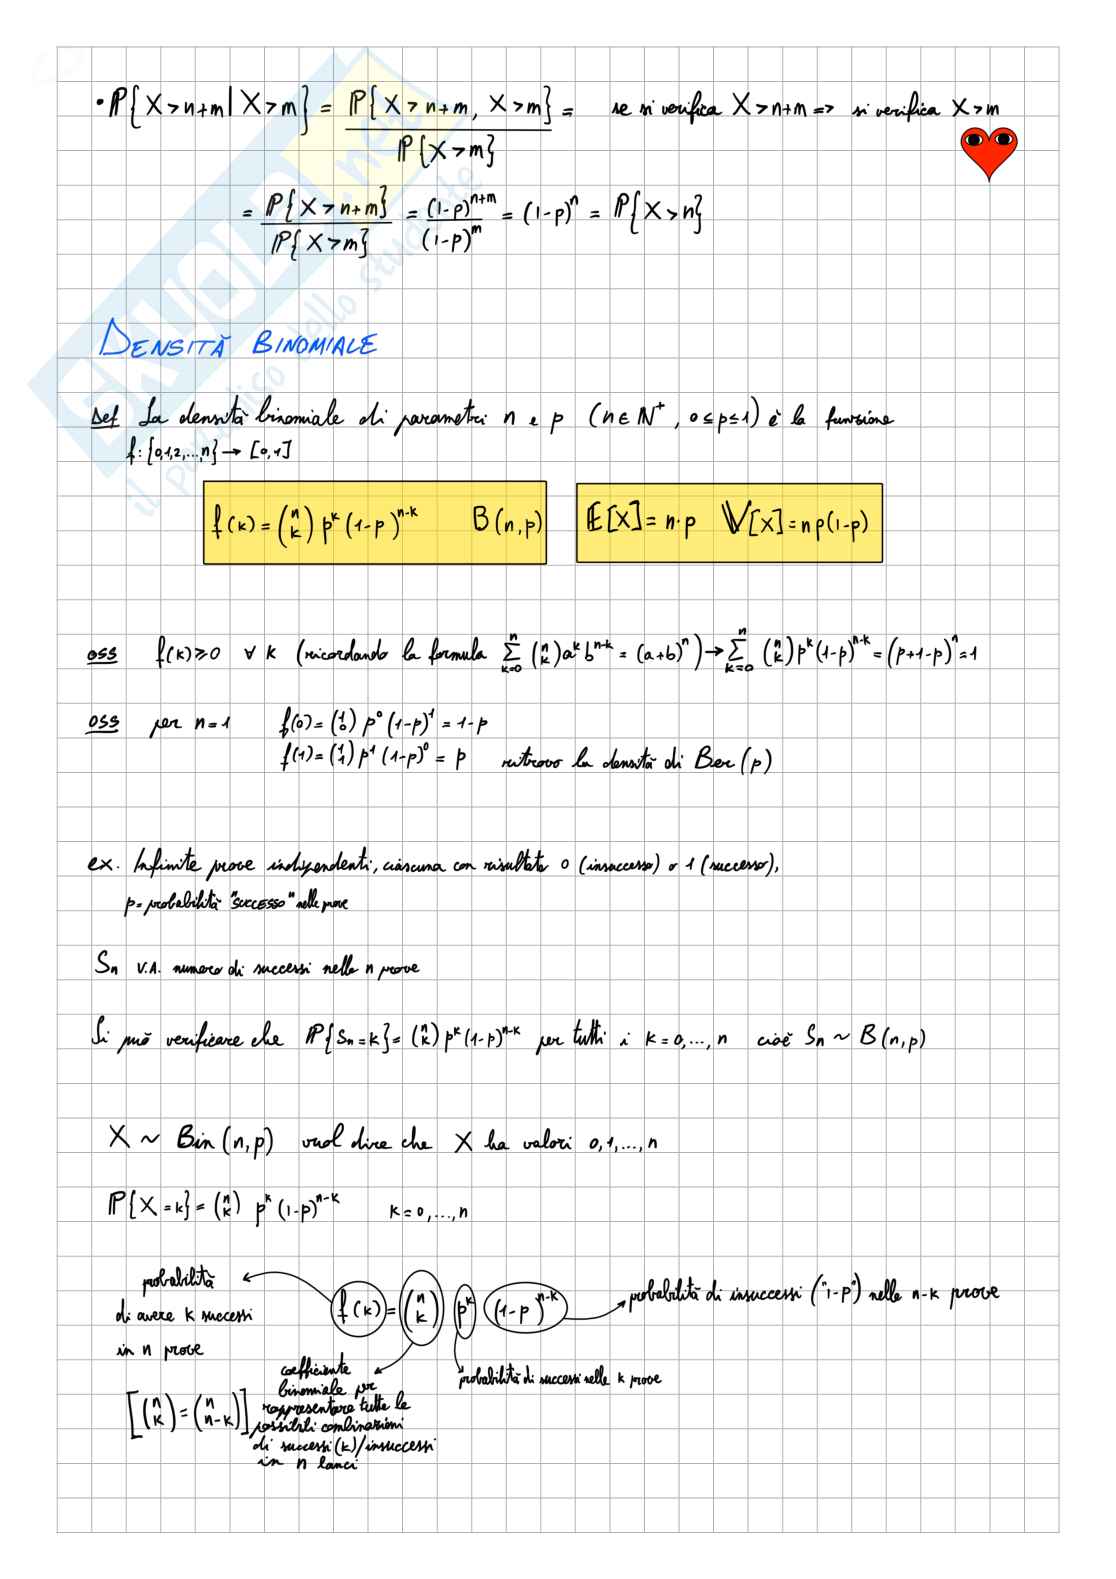 • ℙ{X>n+m | X>m} = ℙ{X>n+m, X>m} / ℙ{X>m} = se si verifica X>n+m => si verifica X>m
= ℙ{X>n+m} / ℙ{X>m} = (1-p)^{n+m} / (1-p)^m = (1-p)^n = ℙ{X>n}
DENSITÀ BINOMIALE
Def La densità binomiale di parametri n e p (n∈ℕ⁺, 0≤p≤1) è la funzione
f: {0,1,2,...,n} → [0,1]
f(k) = (n k) p^k (1-p)^{n-k} B(n,p) 𝔼[X] = n·p 𝕍[X] = np(1-p)
oss f(k)≥0 ∀ k (ricordando la formula Σ_{k=0}^{n} (n k) a^k b^{n-k} = (a+b)^n) → Σ_{k=0}^{n} (n k) p^k (1-p)^{n-k} = (p+1-p)^n = 1
oss per n=1 f(0) = (1 0) p^0 (1-p)^1 = 1-p
f(1) = (1 1) p^1 (1-p)^0 = p ritrovo la densità di Ber(p)
ex. Infinite prove indipendenti, ciascuna con risultato 0 (insuccesso) o 1 (successo),
p = probabilità "SUCCESSO" nelle prove
Sn V.A. numero di successi nelle n prove
Si può verificare che ℙ{Sn=k} = (n k) p^k (1-p)^{n-k} per tutti i k=0,...,n cioè Sn ~ B(n,p)
X ~ Bin(n,p) vuol dire che X ha valori 0,1,...,n
ℙ{X=k} = (n k) p^k (1-p)^{n-k} k=0,...,n
f(k) = (n k) p^k (1-p)^{n-k}
probabilità
di avere k successi
in n prove
probabilità di insuccessi ("1-p") nelle n-k prove
probabilità di successi nelle k prove
coefficiente
binomiale per
rappresentare tutte le
possibili combinazioni
di successi (k)/insuccessi
in n lanci
[(n k) = (n n-k)]
SKUOLA.net
il paradiso dello studente